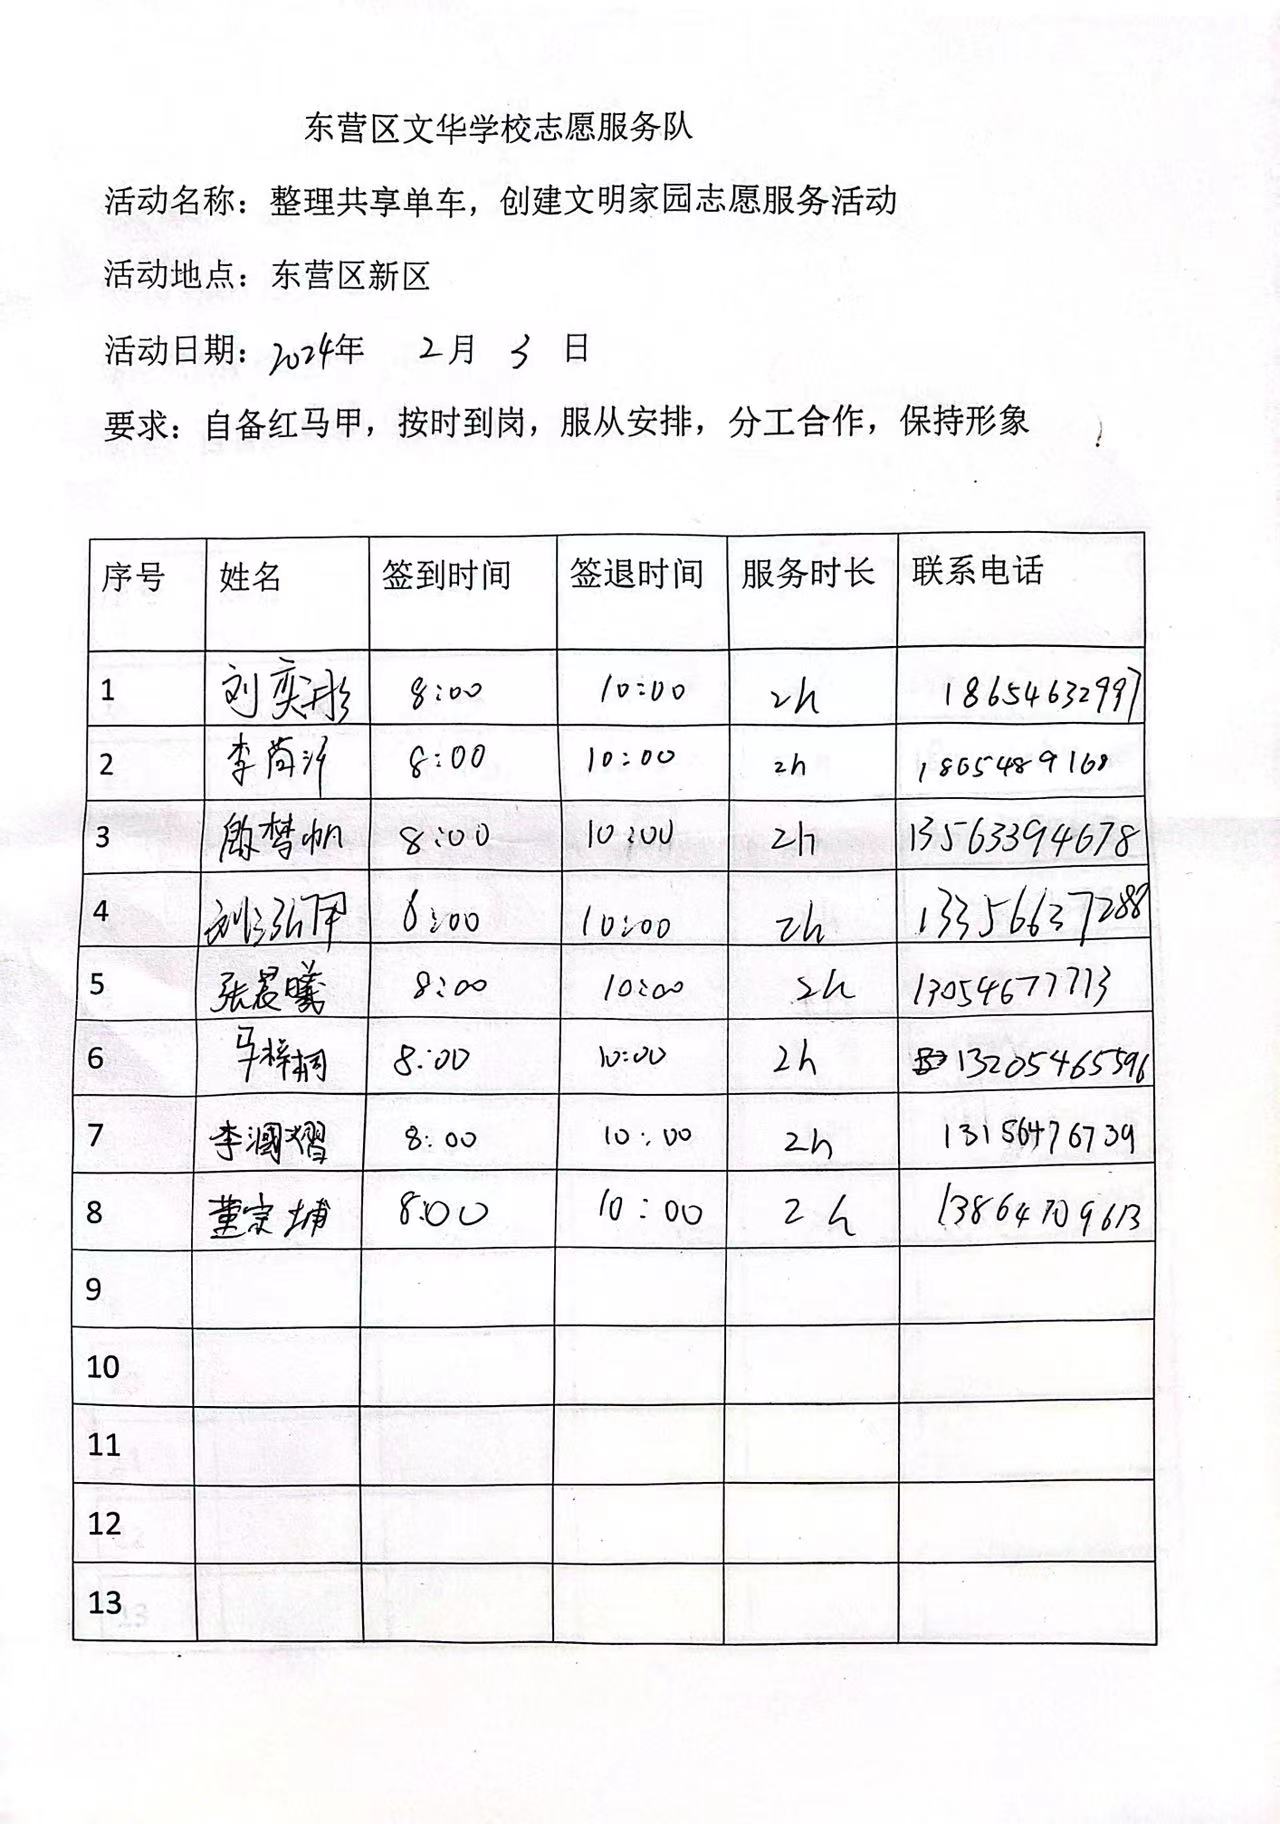 东营区文华学校志愿服务队
活动名称：整理共享单车，创建文明家园志愿服务活动
活动地点：东营区新区
活动日期：2024年 2月 3 日
要求：自备红马甲，按时到岗，服从安排，分工合作，保持形象
序号 姓名 签到时间 签退时间 服务时长 联系电话
1 刘奕彤 8:00 10:00 2h 18654632997
2 李 8:00 10:00 2h 18654891680
3 殷梦帆 8:00 10:00 2h 13563394678
4 8:00 10:00 2h 13356637288
5 张晨曦 8:00 10:00 2h 13054677713
6 马梓桐 8:00 10:00 2h 13205465596
7 李 8:00 10:00 2h 13156476739
8 董宗埔 8:00 10:00 2h 13864709613
9
10
11
12
13